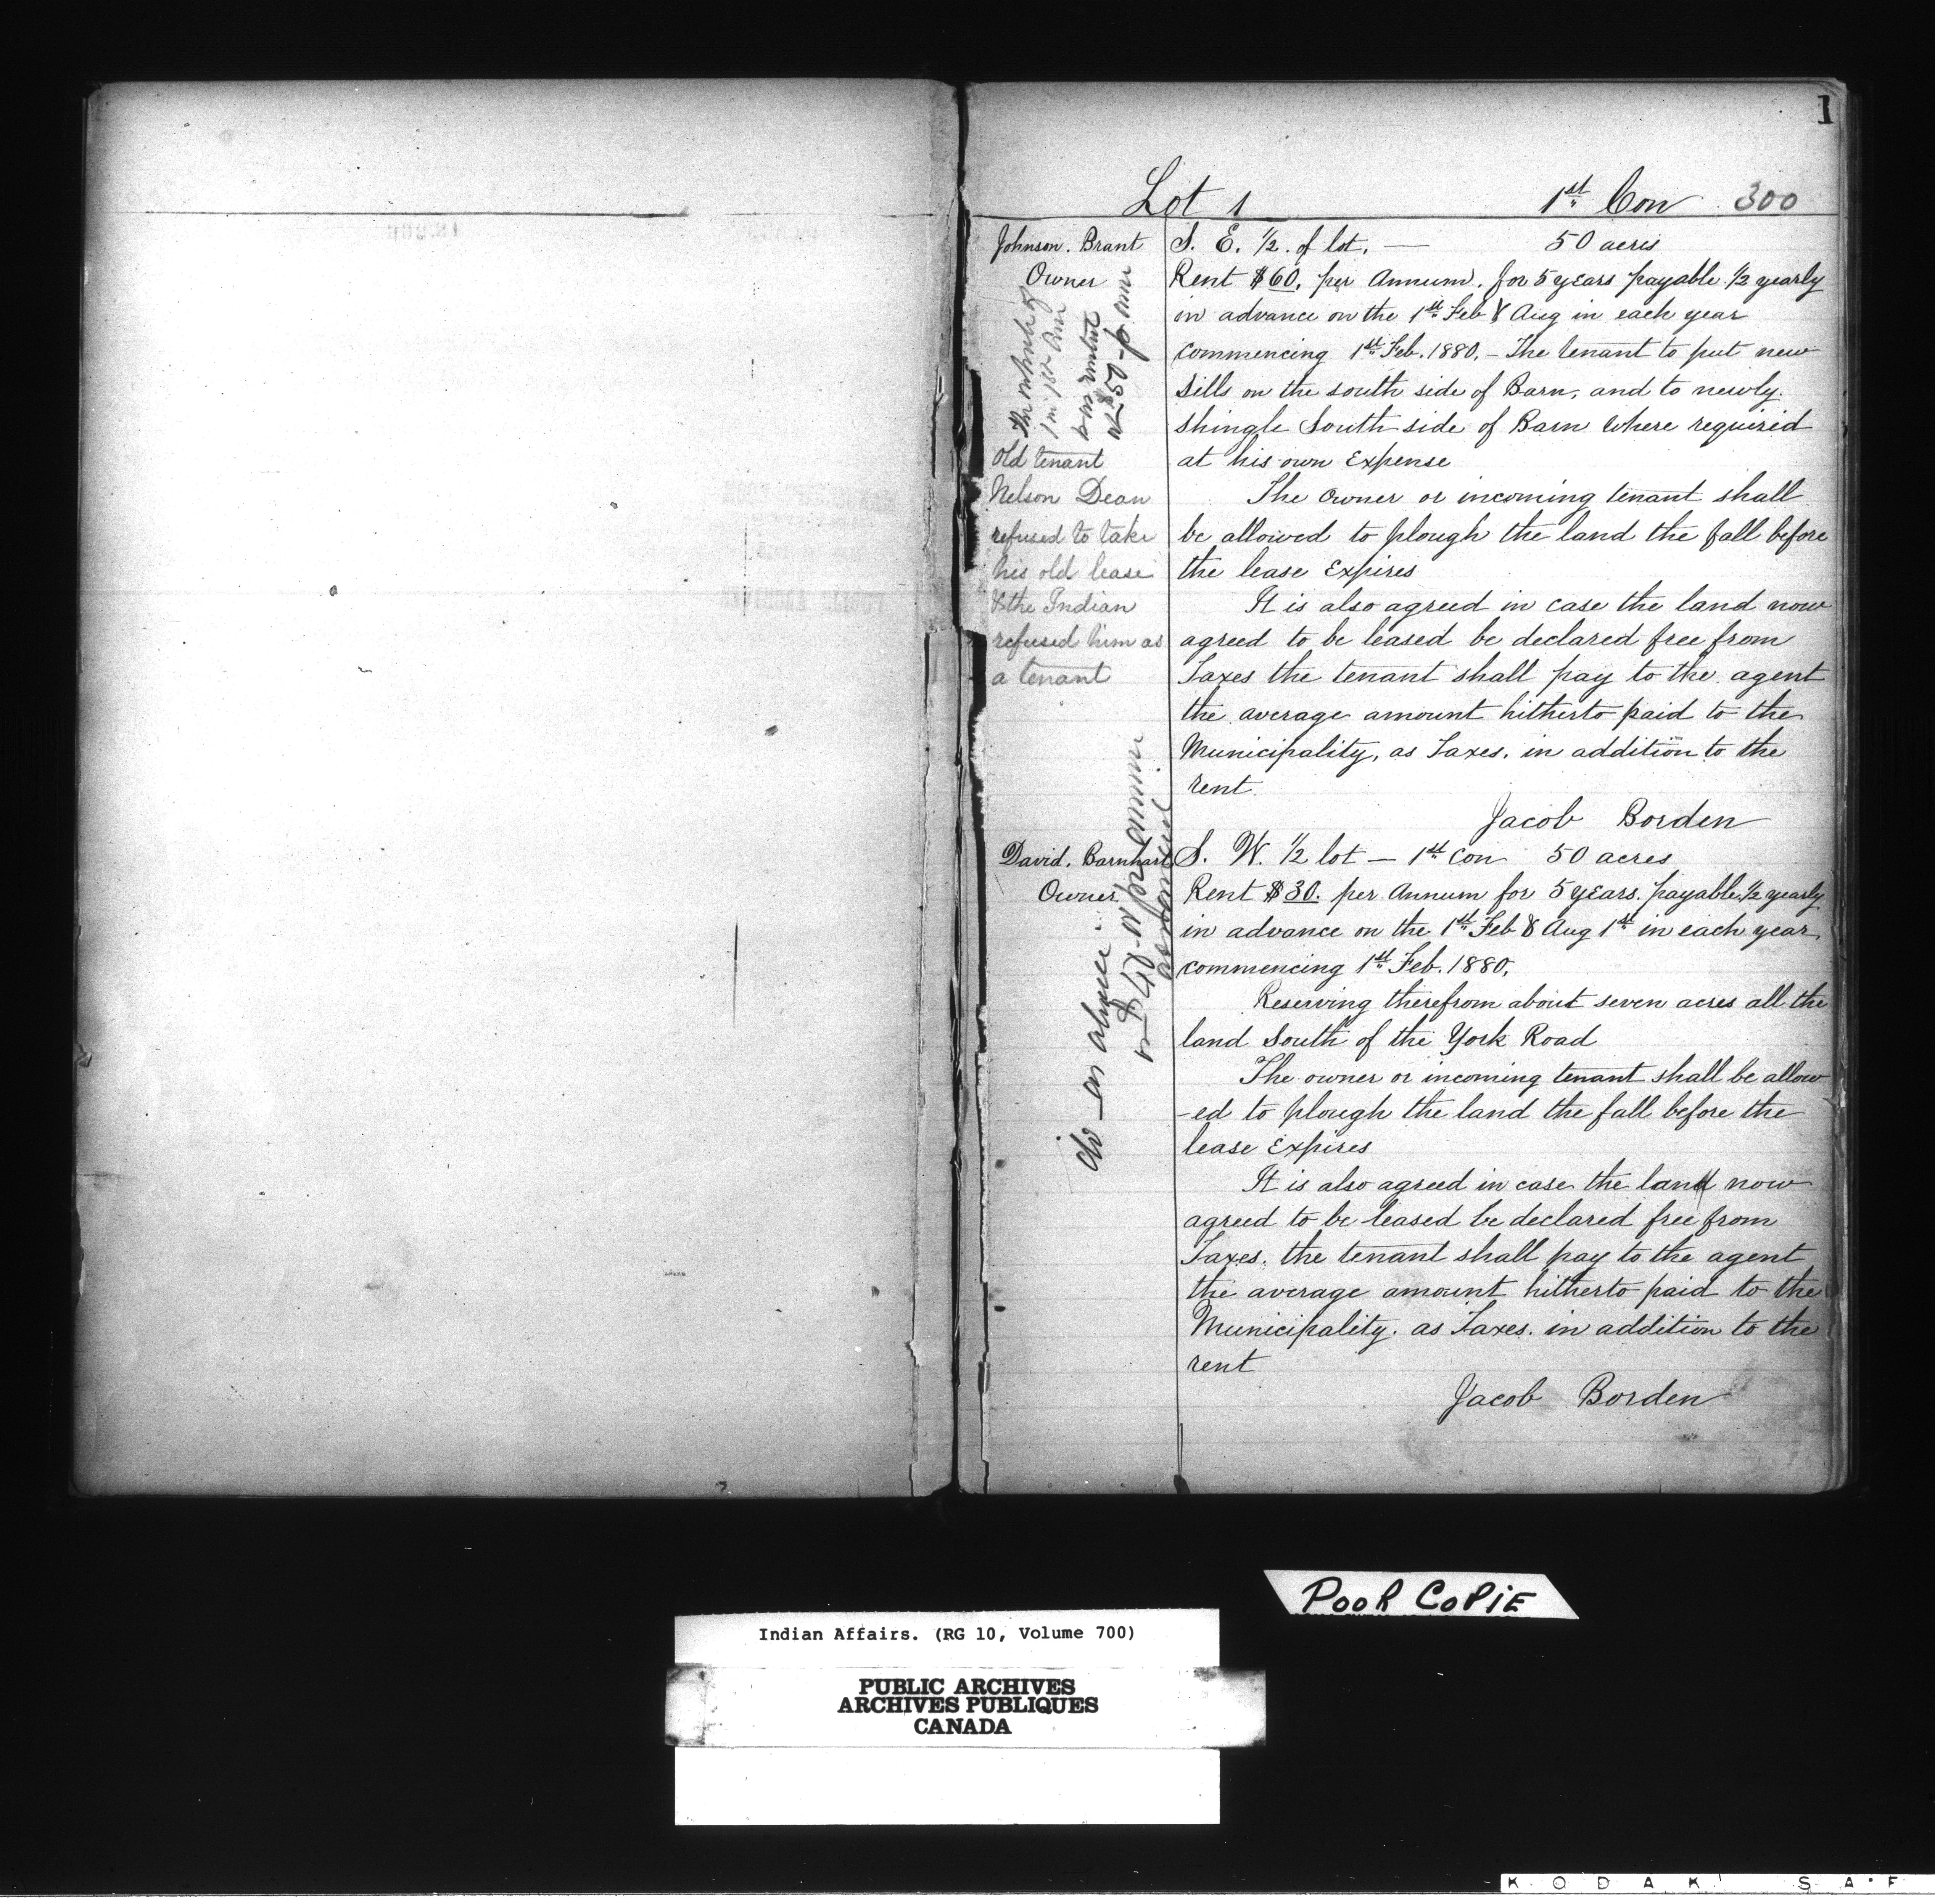 1
Lot 1 1st Con 300
Johnson. Brant
Owner
S. E. 1/2. of lot. — 50 acres
Rent $60. per Annum. for 5 years payable 1/2 yearly
in advance on the 1st Feb & Aug in each year
commencing 1st Feb. 1880. – The tenant to put new
Sills on the south side of Barn, and to newly
shingle South side of Barn where required
at his own Expense
The owner or incoming tenant shall
be allowed to plough the land the fall before
the lease Expires
It is also agreed in case the land now
agreed to be leased be declared free from
Taxes the tenant shall pay to the agent
the average amount hitherto paid to the
Municipality, as Taxes. in addition to the
rent
Jacob Borden
The whole of
was rented
at $50 - p ann
Old tenant
Nelson Dean
refused to take
his old lease
& the Indian
refused him as
a tenant
David. Barnhart
Owner.
S. W. 1/2 lot — 1st Con 50 acres
Rent $30. per Annum for 5 years. payable 1/2 yearly
in advance on the 1st Feb & Aug 1st in each year
commencing 1st Feb. 1880.
Reserving therefrom about seven acres all the
land South of the York Road
The owner or incoming tenant shall be allow
-ed to plough the land the fall before the
lease Expires
It is also agreed in case the land now
agreed to be leased be declared free from
Taxes. the tenant shall pay to the agent
the average amount hitherto paid to the
Municipality. as Taxes. in addition to the
rent
Jacob Borden
do – as above
per annum
POOR COPIE
Indian Affairs. (RG 10, Volume 700)
PUBLIC ARCHIVES
ARCHIVES PUBLIQUES
CANADA
KODAK SAF